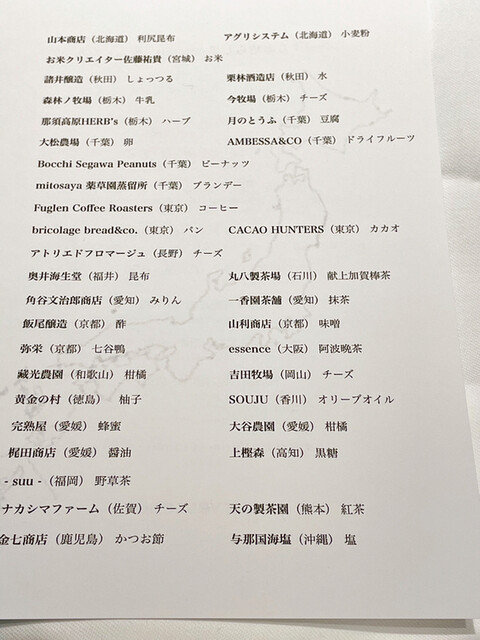 山本商店（北海道） 利尻昆布　アグリシステム（北海道） 小麦粉
お米クリエイター佐藤祐貴（宮城） お米
諸井醸造（秋田） しょっつる　栗林酒造店（秋田） 水
森林ノ牧場（栃木） 牛乳　今牧場（栃木） チーズ
那須高原HERB's（栃木） ハーブ　月のとうふ（千葉） 豆腐
大松農場（千葉） 卵　AMBESSA&CO（千葉） ドライフルーツ
Bocchi Segawa Peanuts（千葉） ピーナッツ
mitosaya 薬草園蒸留所（千葉） ブランデー
Fuglen Coffee Roasters（東京） コーヒー
bricolage bread&co.（東京） パン　CACAO HUNTERS（東京） カカオ
アトリエドフロマージュ（長野） チーズ
奥井海生堂（福井） 昆布　丸八製茶場（石川） 献上加賀棒茶
角谷文治郎商店（愛知） みりん　一香園茶舗（愛知） 抹茶
飯尾醸造（京都） 酢　山利商店（京都） 味噌
弥栄（京都） 七谷鴨　essence（大阪） 阿波晩茶
蔵光農園（和歌山） 柑橘　吉田牧場（岡山） チーズ
黄金の村（徳島） 柚子　SOUJU（香川） オリーブオイル
完熟屋（愛媛） 蜂蜜　大谷農園（愛媛） 柑橘
梶田商店（愛媛） 醤油　上樫森（高知） 黒糖
- suu -（福岡） 野草茶
ナカシマファーム（佐賀） チーズ　天の製茶園（熊本） 紅茶
金七商店（鹿児島） かつお節　与那国海塩（沖縄） 塩